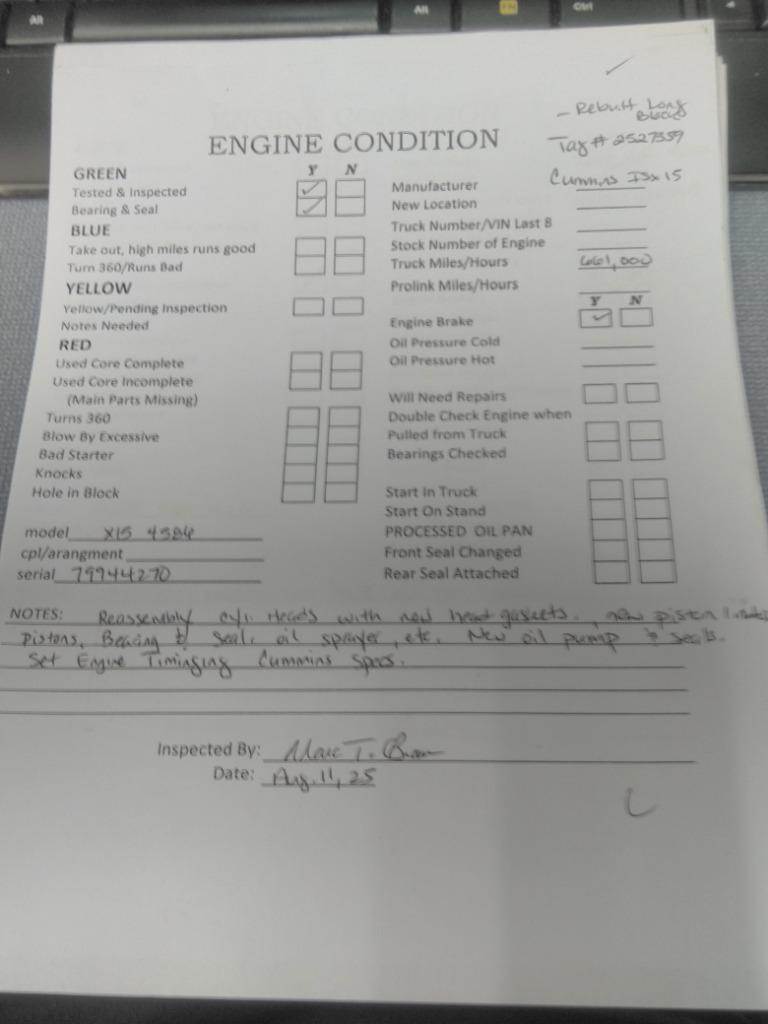 - Rebuilt Long
Block
Tag # 2527359
ENGINE CONDITION
GREEN Y N
Tested & Inspected
Bearing & Seal
BLUE
Take out, high miles runs good
Turn 360/Runs Bad
YELLOW
Yellow/Pending Inspection
Notes Needed
RED
Used Core Complete
Used Core Incomplete
(Main Parts Missing)
Turns 360
Blow By Excessive
Bad Starter
Knocks
Hole in Block
model X15
cpl/arangment
serial 79944270
Manufacturer Cummins ISX 15
New Location
Truck Number/VIN Last 8
Stock Number of Engine
Truck Miles/Hours 661,000
Prolink Miles/Hours
Y N
Engine Brake
Oil Pressure Cold
Oil Pressure Hot
Will Need Repairs
Double Check Engine when
Pulled from Truck
Bearings Checked
Start In Truck
Start On Stand
PROCESSED OIL PAN
Front Seal Changed
Rear Seal Attached
NOTES: Reassembly cyl. Heads with new head gaskets, new piston
Pistons, Bearing & Seal, oil sprayer, etc. New oil pump & seals.
Set Engine Timinging Cummins Specs.
Inspected By: Marc T.
Date: Aug. 11, 25
Alt
Alt
FN
Ctrl